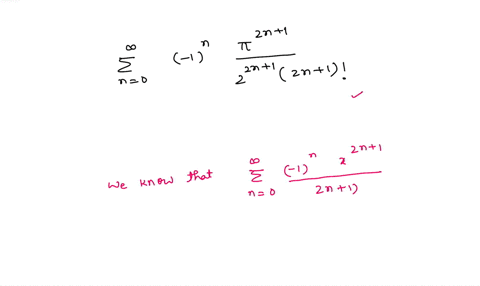 ∑_{n=0}^{∞} (-1)^n π^{2n+1} / 2^{2n+1} (2n+1)!
we know that ∑_{n=0}^{∞} (-1)^n x^{2n+1} / 2n+1)